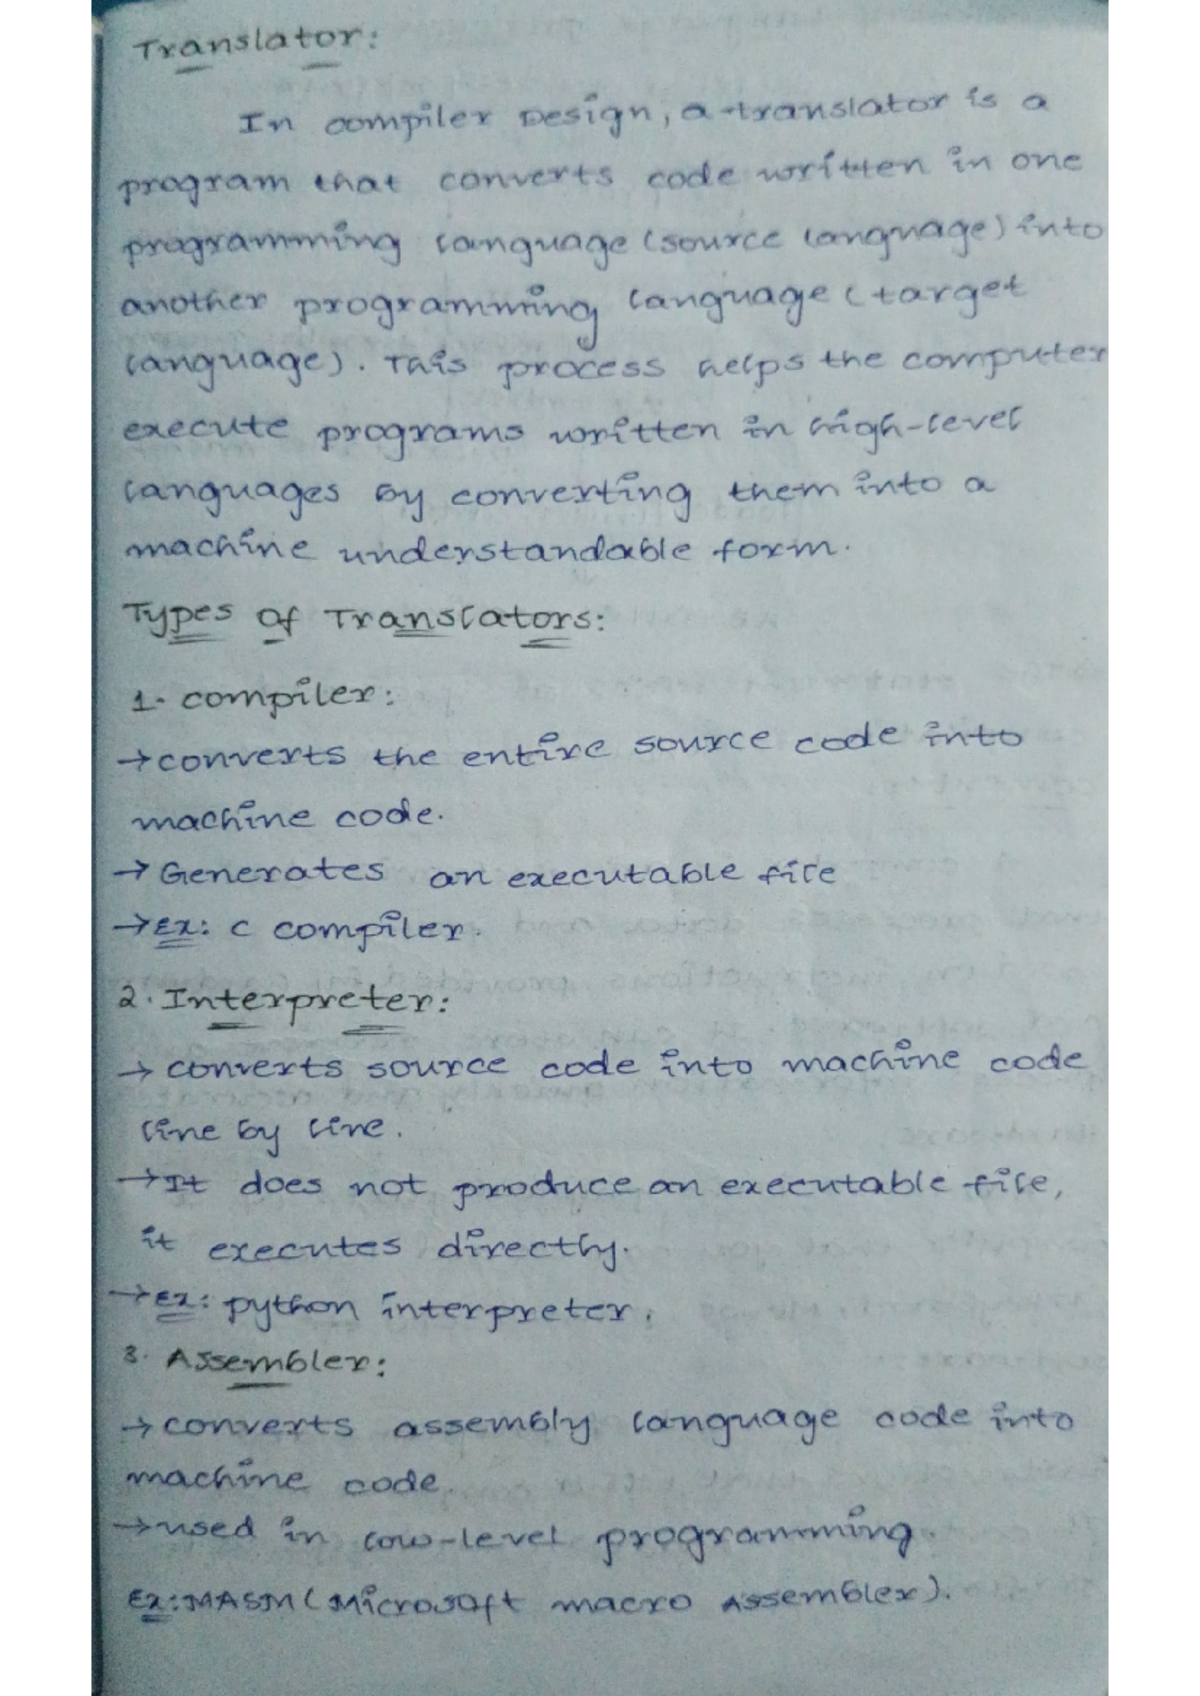 Translator:
In compiler Design, a translator is a
program that converts code written in one
programming language (source language) into
another programming language (target
language). This process helps the computer
execute programs written in high-level
languages by converting them into a
machine understandable form.
Types of Translators:
1. compiler:
→ converts the entire source code into
machine code.
→ Generates an executable file
→ Ex: c compiler.
2. Interpreter:
→ converts source code into machine code
line by line.
→ It does not produce an executable file,
it executes directly.
→ Ex: python interpreter.
3. Assembler:
→ converts assembly language code into
machine code.
→ used in low-level programming.
Ex: MASM (Microsoft macro Assembler).